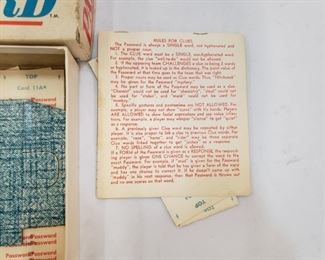 RD
T.M.
TOP
Card 11A
RULES FOR CLUES
The Password is always a SINGLE word, not hyphenated and
NOT a proper noun.
1. The CLUE word must be a SINGLE, non-hyphenated word.
For example, the clue "well-to-do" would not be allowed.
2. If the opposing team CHALLENGES a clue as being 2 words
or hyphenated, it is looked up in the dictionary. The full point value
of the Password at that time goes to the team that was right.
3. Proper nouns may be used as clues. Thus "Hitchcock"
may be given for the Password "suspense".
4. No part or form of the Password may be used as a clue.
"Chemist" could not be used for "chemistry", "steal" could not
be used for "stolen", and "monk" could not be used for
"monkey".
5. Specific gestures and pantomimes are NOT ALLOWED. For
example, a player may not show "scarf" with his hands. Players
ARE ALLOWED to show facial expressions and use voice inflec-
tions. For example, a player may whisper "silence" to get "quiet"
as a response.
6. A previously given Clue word may be repeated by either
team. It is also proper to link a clue to previous Clue words. For
example, "nose", "horse", and "rider" may be three separate
Clue words linked together to get "jockey" as a response.
7. NO SPELLING of a clue word is allowed.
If a FORM of the Password is given as a RESPONSE, the respond-
ing player is given ONE CHANCE to correct the word to the
exact Password. For example, if "mud" is given for the Password
"muddy", the player is told that he has given a form of the word
and has one chance to correct it. If he should be caught on
"muddy" in his next response, then that Password is thrown out
and no one scores on that word.
TOP
Password
Password
Password
Password